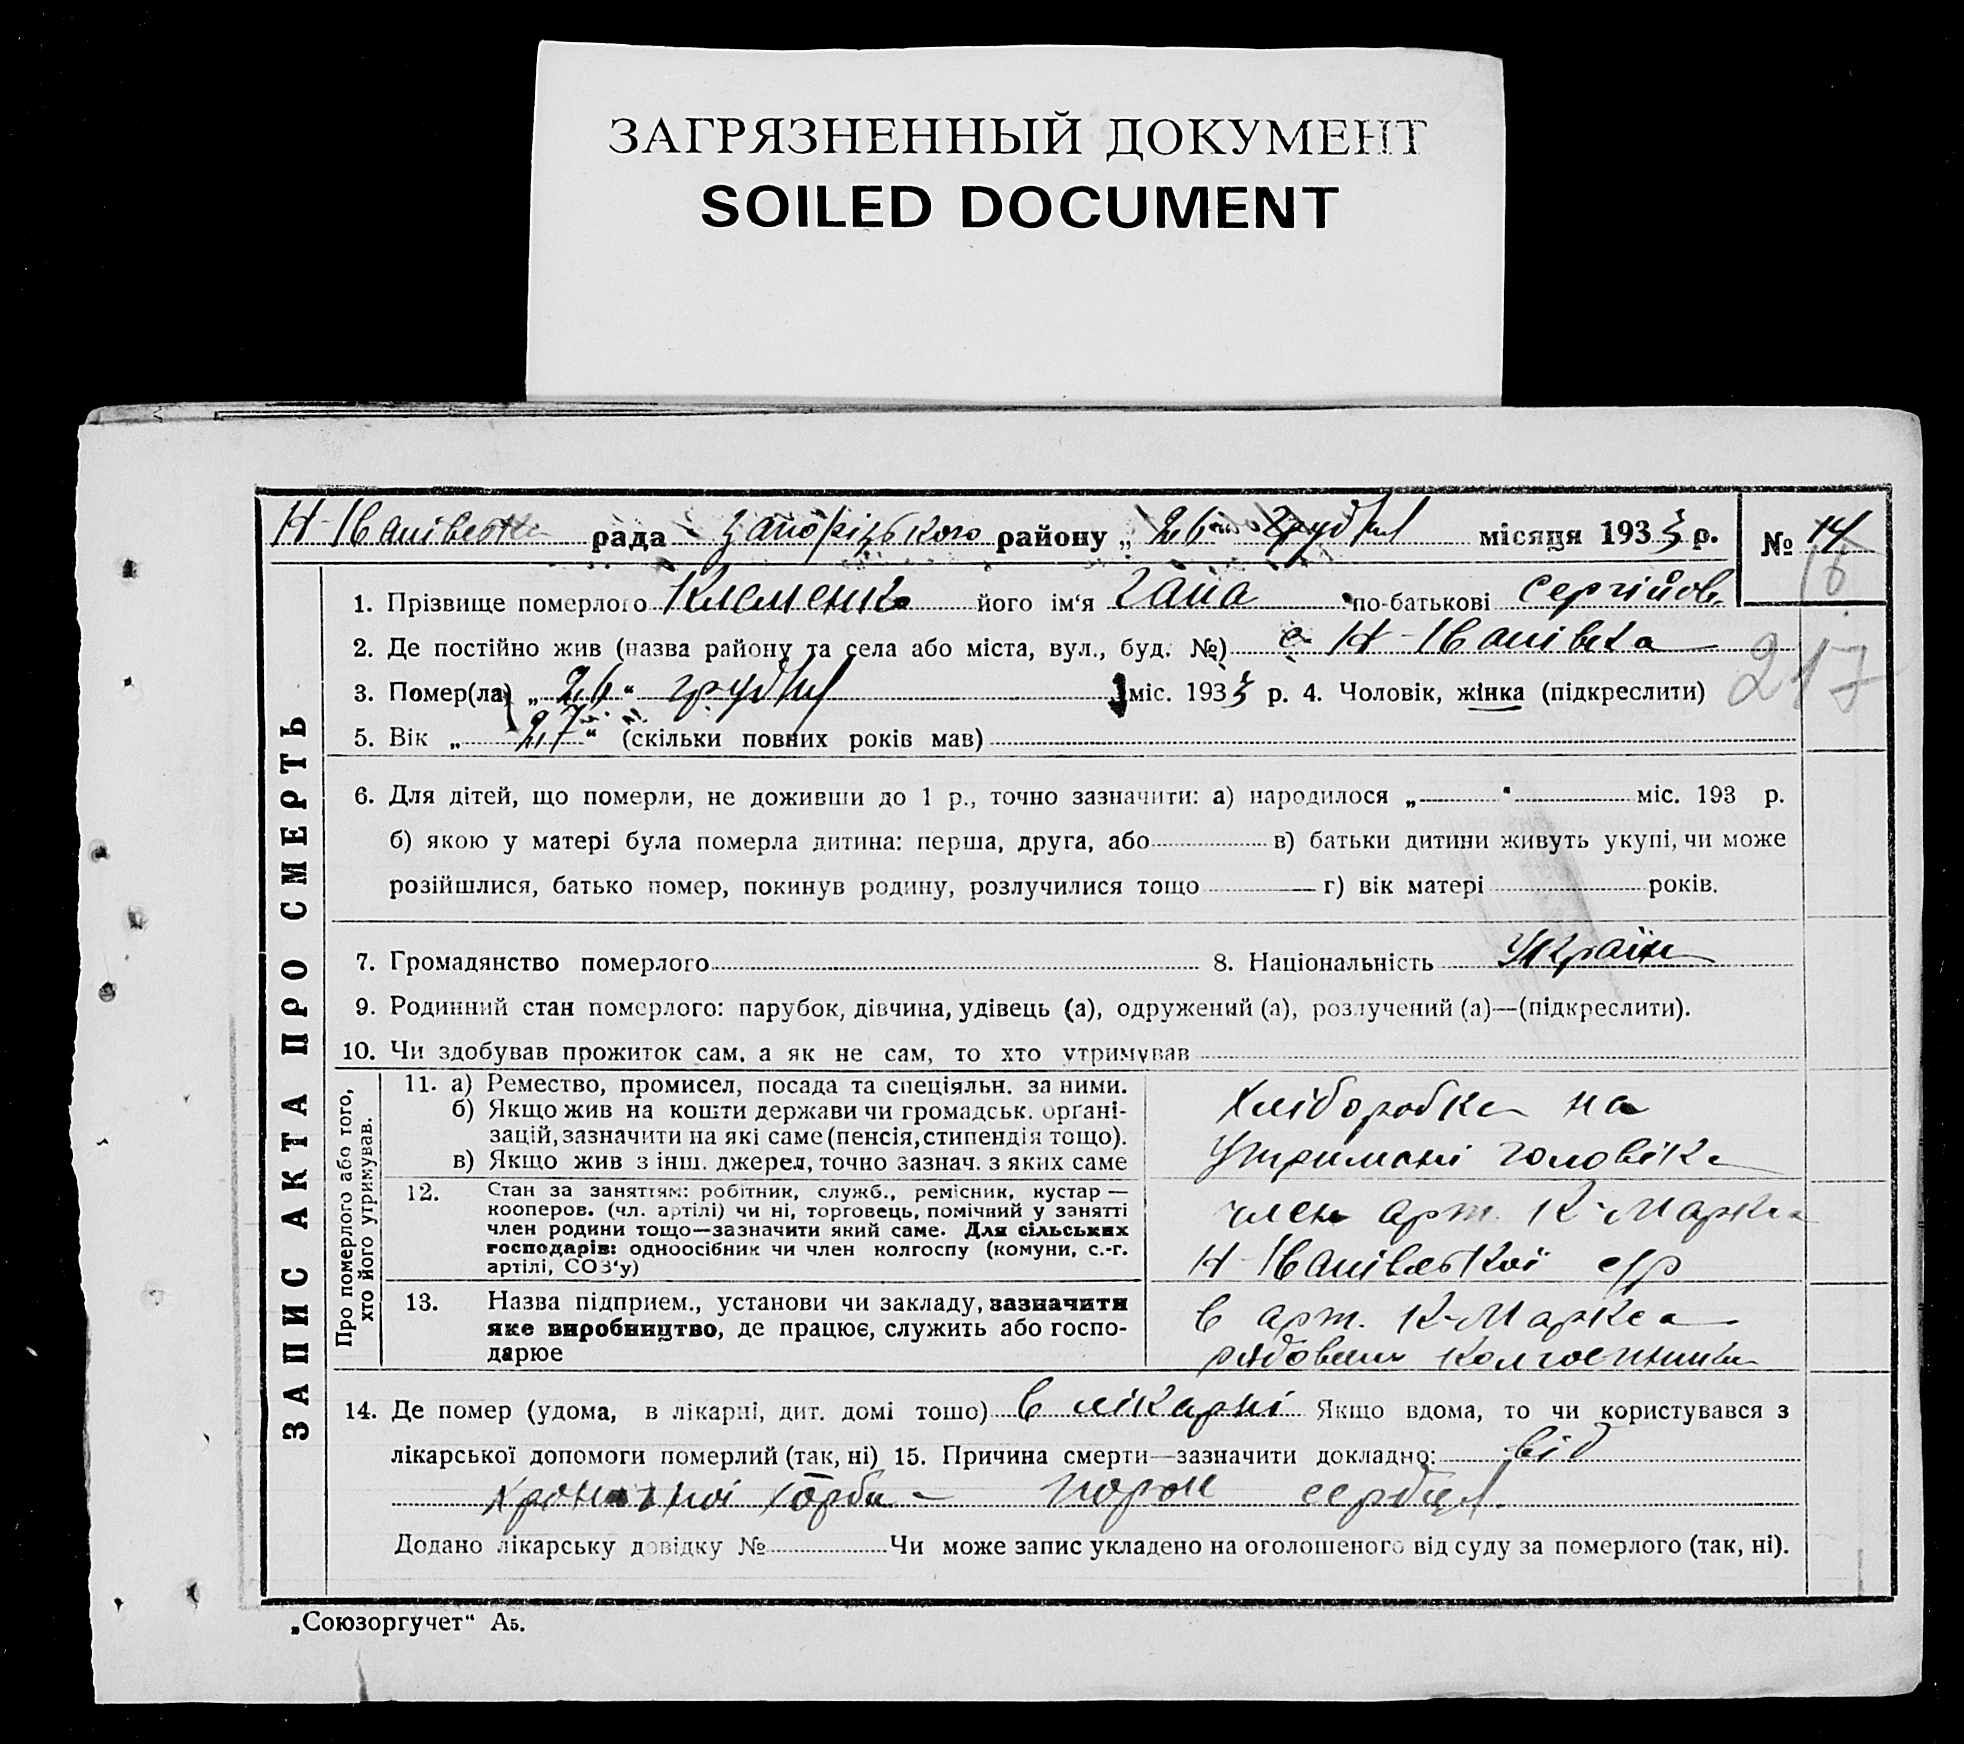 ЗАГРЯЗНЕННЫЙ ДОКУМЕНТ
SOILED DOCUMENT
рада Запорізького району „26“ грудня місяця 1933 р. № 14
16
1. Прізвище померлого Клеменко його ім‘я Гана по-батькові Сергійов.
2. Де постійно жив (назва району та села або міста, вул., буд. №) с. Н-Іванівка
217
3. Помер(ла) „26“ грудня міс. 1933 р. 4. Чоловік, жінка (підкреслити)
5. Вік „27“ (скільки повних років мав)
6. Для дітей, що померли, не доживши до 1 р., точно зазначити: а) народилося „ “ міс. 193 р.
б) якою у матері була померла дитина: перша, друга, або в) батьки дитини живуть укупі, чи може
розійшлися, батько помер, покинув родину, розлучилися тощо г) вік матері років.
7. Громадянство померлого 8. Національність Україн
9. Родинний стан померлого: парубок, дівчина, удівець (а), одружений (а), розлучений (а)—(підкреслити).
10. Чи здобував прожиток сам, а як не сам, то хто утримував
ЗАПИС АКТА ПРО СМЕРТЬ
Про померлого або того,
хто його утримував.
11. а) Ремество, промисел, посада та спеціяльн. за ними.
б) Якщо жив на кошти держави чи громадськ. органі-
зацій, зазначити на які саме (пенсія, стипендія тощо).
в) Якщо жив з інш. джерел, точно зазнач. з яких саме
Хліборобка на
утримані чоловіка
12. Стан за заняттям: робітник, служб., ремісник, кустар —
кооперов. (чл. артілі) чи ні, торговець, помічний у занятті
член родини тощо—зазначити який саме. Для сільських
господарів: одноосібник чи член колгоспу (комуни, с.-г.
артілі, СОЗ‘у)
член арт. К-Маркса
Н-Іванівської с/р
13. Назва підприєм., установи чи закладу, зазначити
яке виробництво, де працює, служить або госпо-
дарює
в арт. К-Маркса
рядовим
14. Де помер (удома, в лікарні, дит. домі тощо) в лікарні Якщо вдома, то чи користувався з
лікарської допомоги померлий (так, ні) 15. Причина смерти—зазначити докладно: від
хронічної хорби - порок сердця
Додано лікарську довідку № Чи може запис укладено на оголошеного від суду за померлого (так, ні).
„Союзоргучет“ А5.